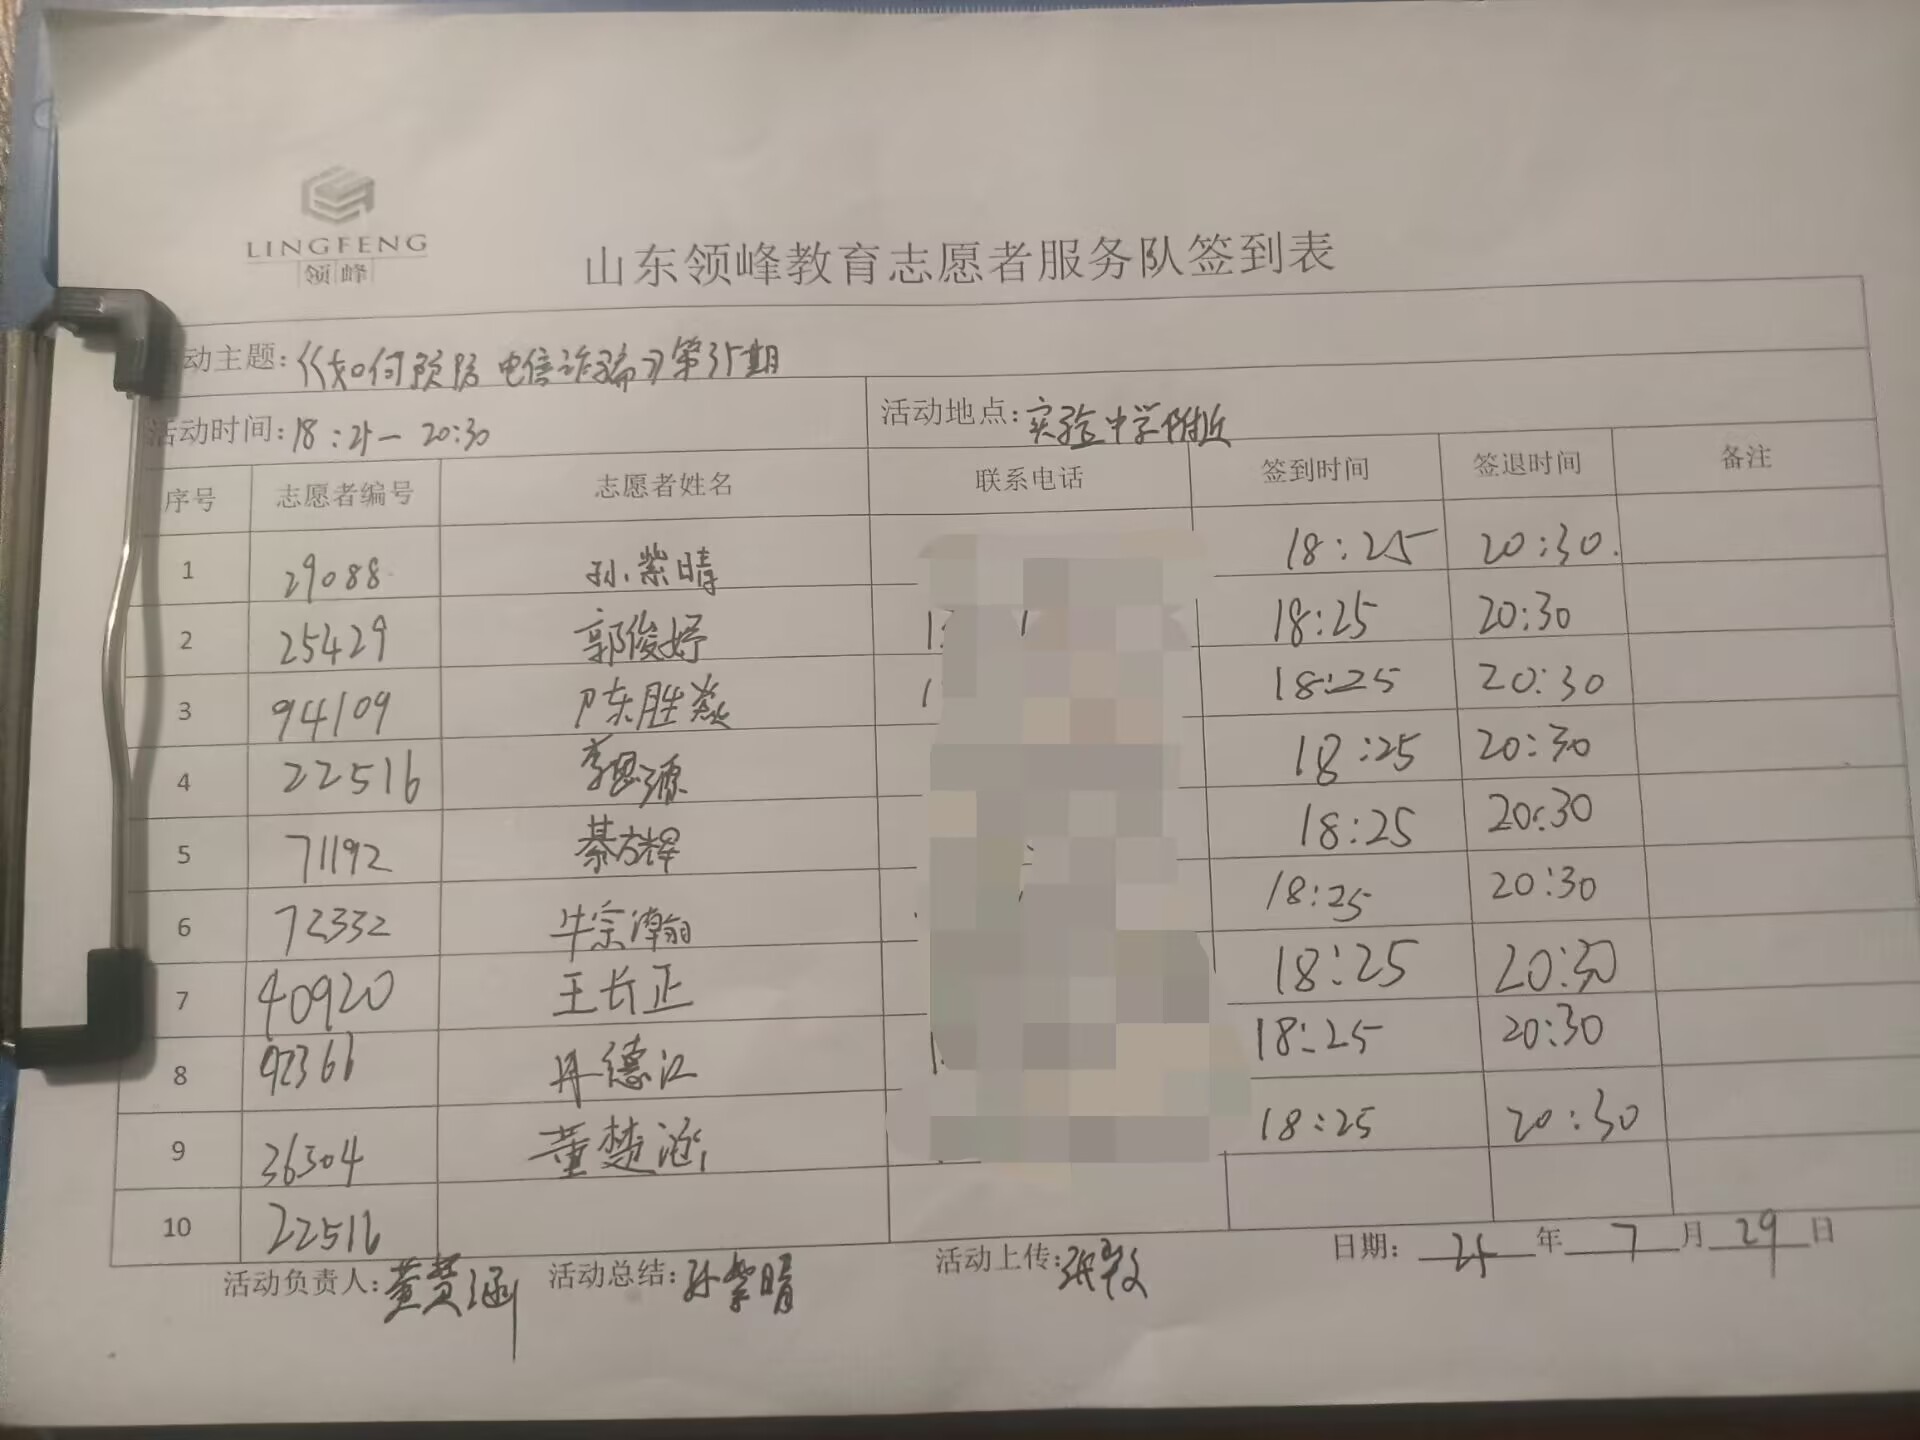 LINGFENG
领峰
山东领峰教育志愿者服务队签到表
动主题:《如何预防电信诈骗》第35期
活动时间:18:25—20:30 活动地点:实验中学附近
序号 志愿者编号 志愿者姓名 联系电话 签到时间 签退时间 备注
1 29088 孙紫晴 18:25 20:30.
2 25429 郭俊妤 18:25 20:30
3 94109 陈胜焱 18:25 20:30
4 22516 李思源 18:25 20:30
5 71192 綦方辉 18:25 20:30
6 72332 牛宗瀚 18:25 20:30
7 40920 王长正 18:25 20:30
8 92361 冉德江 18:25 20:30
9 36304 董楚涵 18:25 20:30
10 22516
活动负责人:董楚涵 活动总结:孙紫晴 活动上传: 日期: 25年7月29日